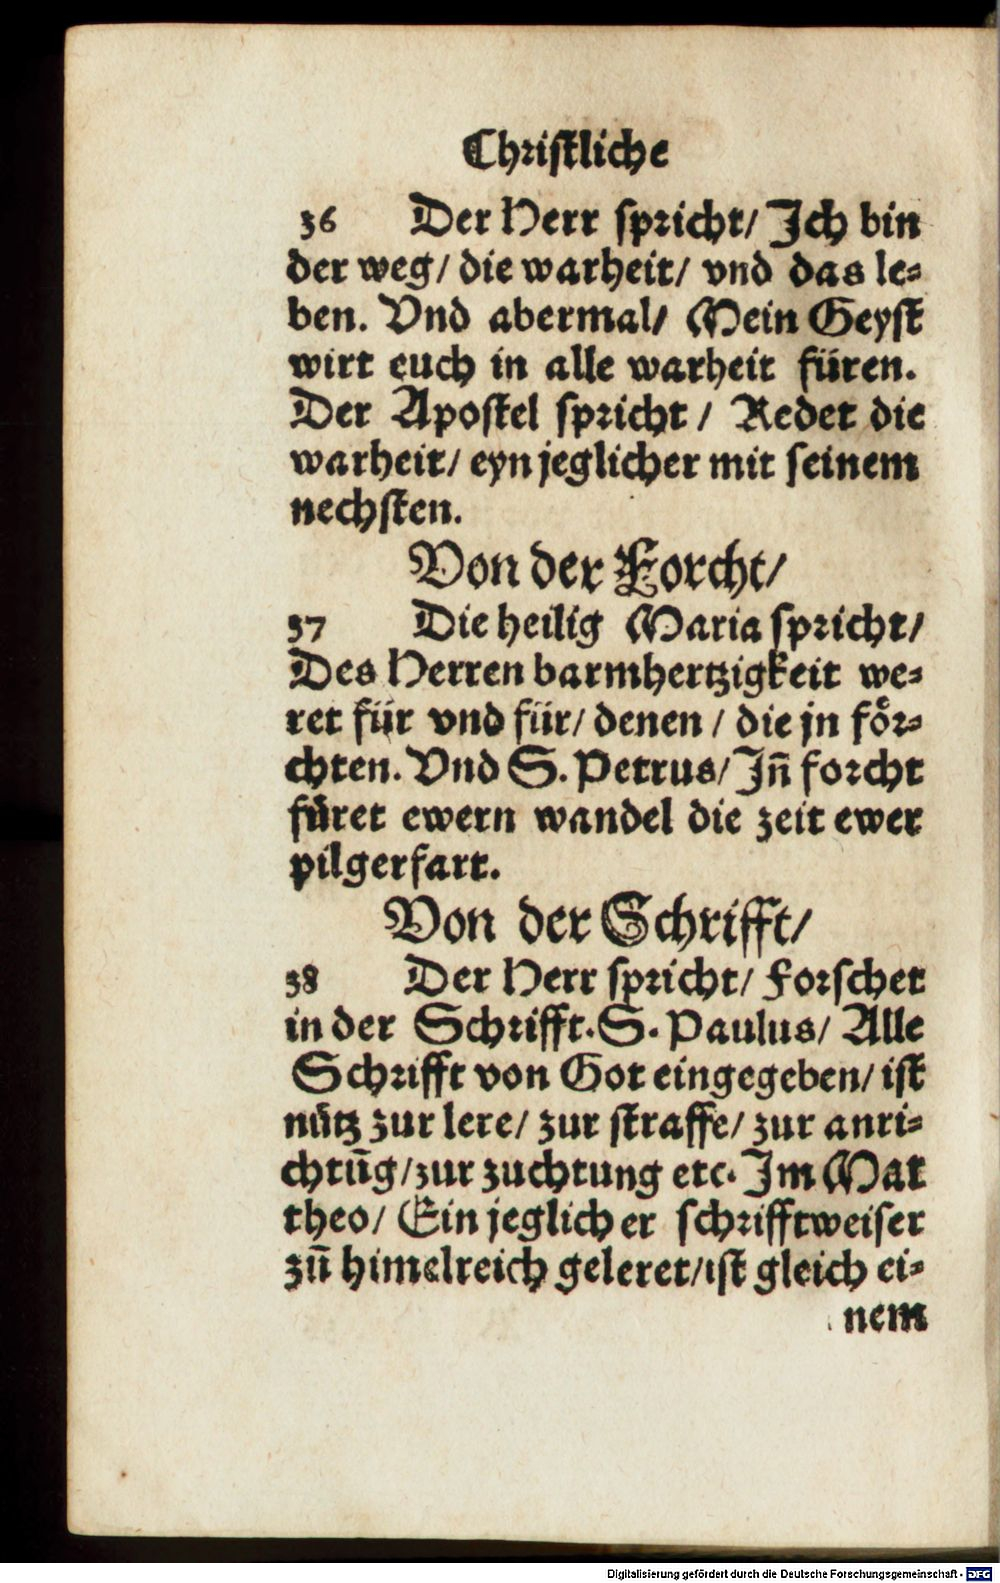 Christliche
36 Der Herr spricht/ Ich bin
der weg/ die warheit/ vnd das le⸗
ben. Vnd abermal/ Mein Geyst
wirt euch in alle warheit füren.
Der Apostel spricht / Redet die
warheit/ eyn jeglicher mit seinem
nechsten.
Von der Forcht/
37 Die heilig Maria spricht/
Des Herren barmhertzigkeit we⸗
ret für vnd für/ denen / die jn foͤr⸗
chten. Vnd S. Petrus/ Jn̄ forcht
fůret ewern wandel die zeit ewer
pilgerfart.
Von der Schrifft/
38 Der Herr spricht/ Forschet
in der Schrifft. S. Paulus/ Alle
Schrifft von Got eingegeben/ ist
nütz zur lere/ zur straffe/ zur anri⸗
chtūg/ zur zuchtung etc. Im Mat
theo/ Ein jeglicher schrifftweiser
zū himelreich geleret/ ist gleich ei⸗
nem
Digitalisierung gefördert durch die Deutsche Forschungsgemeinschaft - DFG